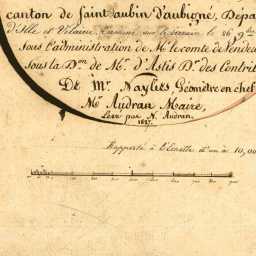 canton de Saint aubin d'aubigné, Depa
d'Ille et Vilaine, Terminé sur le terrain le 26 9.bre
sous l'administration de M.r le comte de Vendeu
sous la D.on de M.r d'Astis D.r des Contrib
De M.r Naylies Géomètre en chef
M.r Audran Maire,
Levé par N. Audran.
1827.
Rapporté à l'Echelle d'un à 10,00